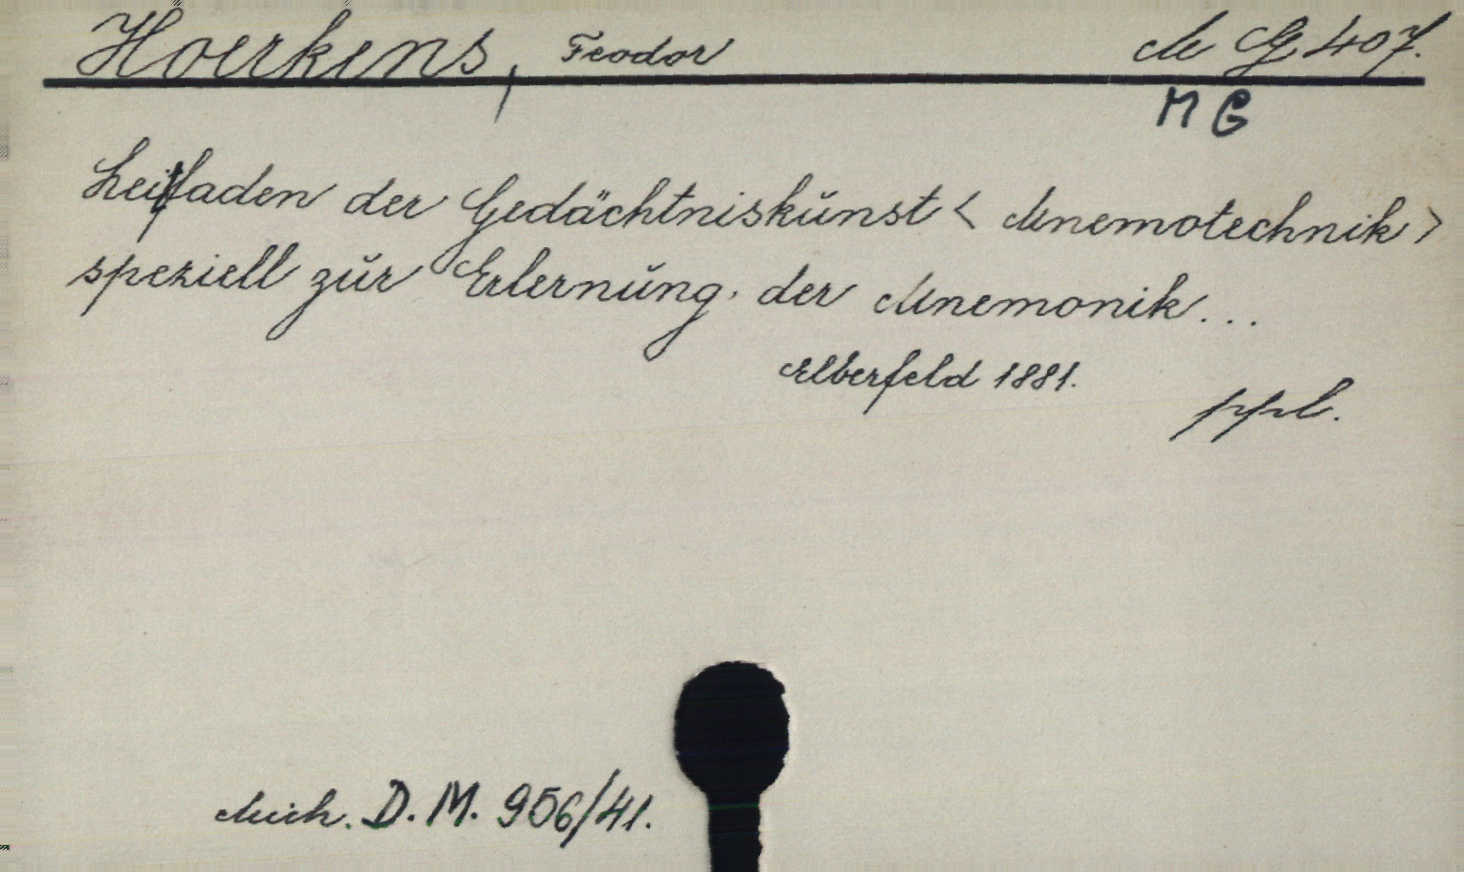 Hoerkens, Feodor M G 407.
M G
Leitfaden der Gedächtniskunst < Mnemotechnik >
speziell zur Erlernung der Mnemonik...
Elberfeld 1881.
ppl.
D. M. 956/41.